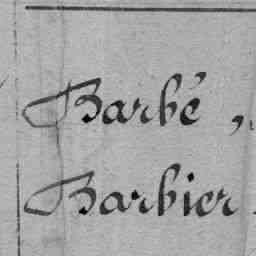 Barbé,
Barbier.